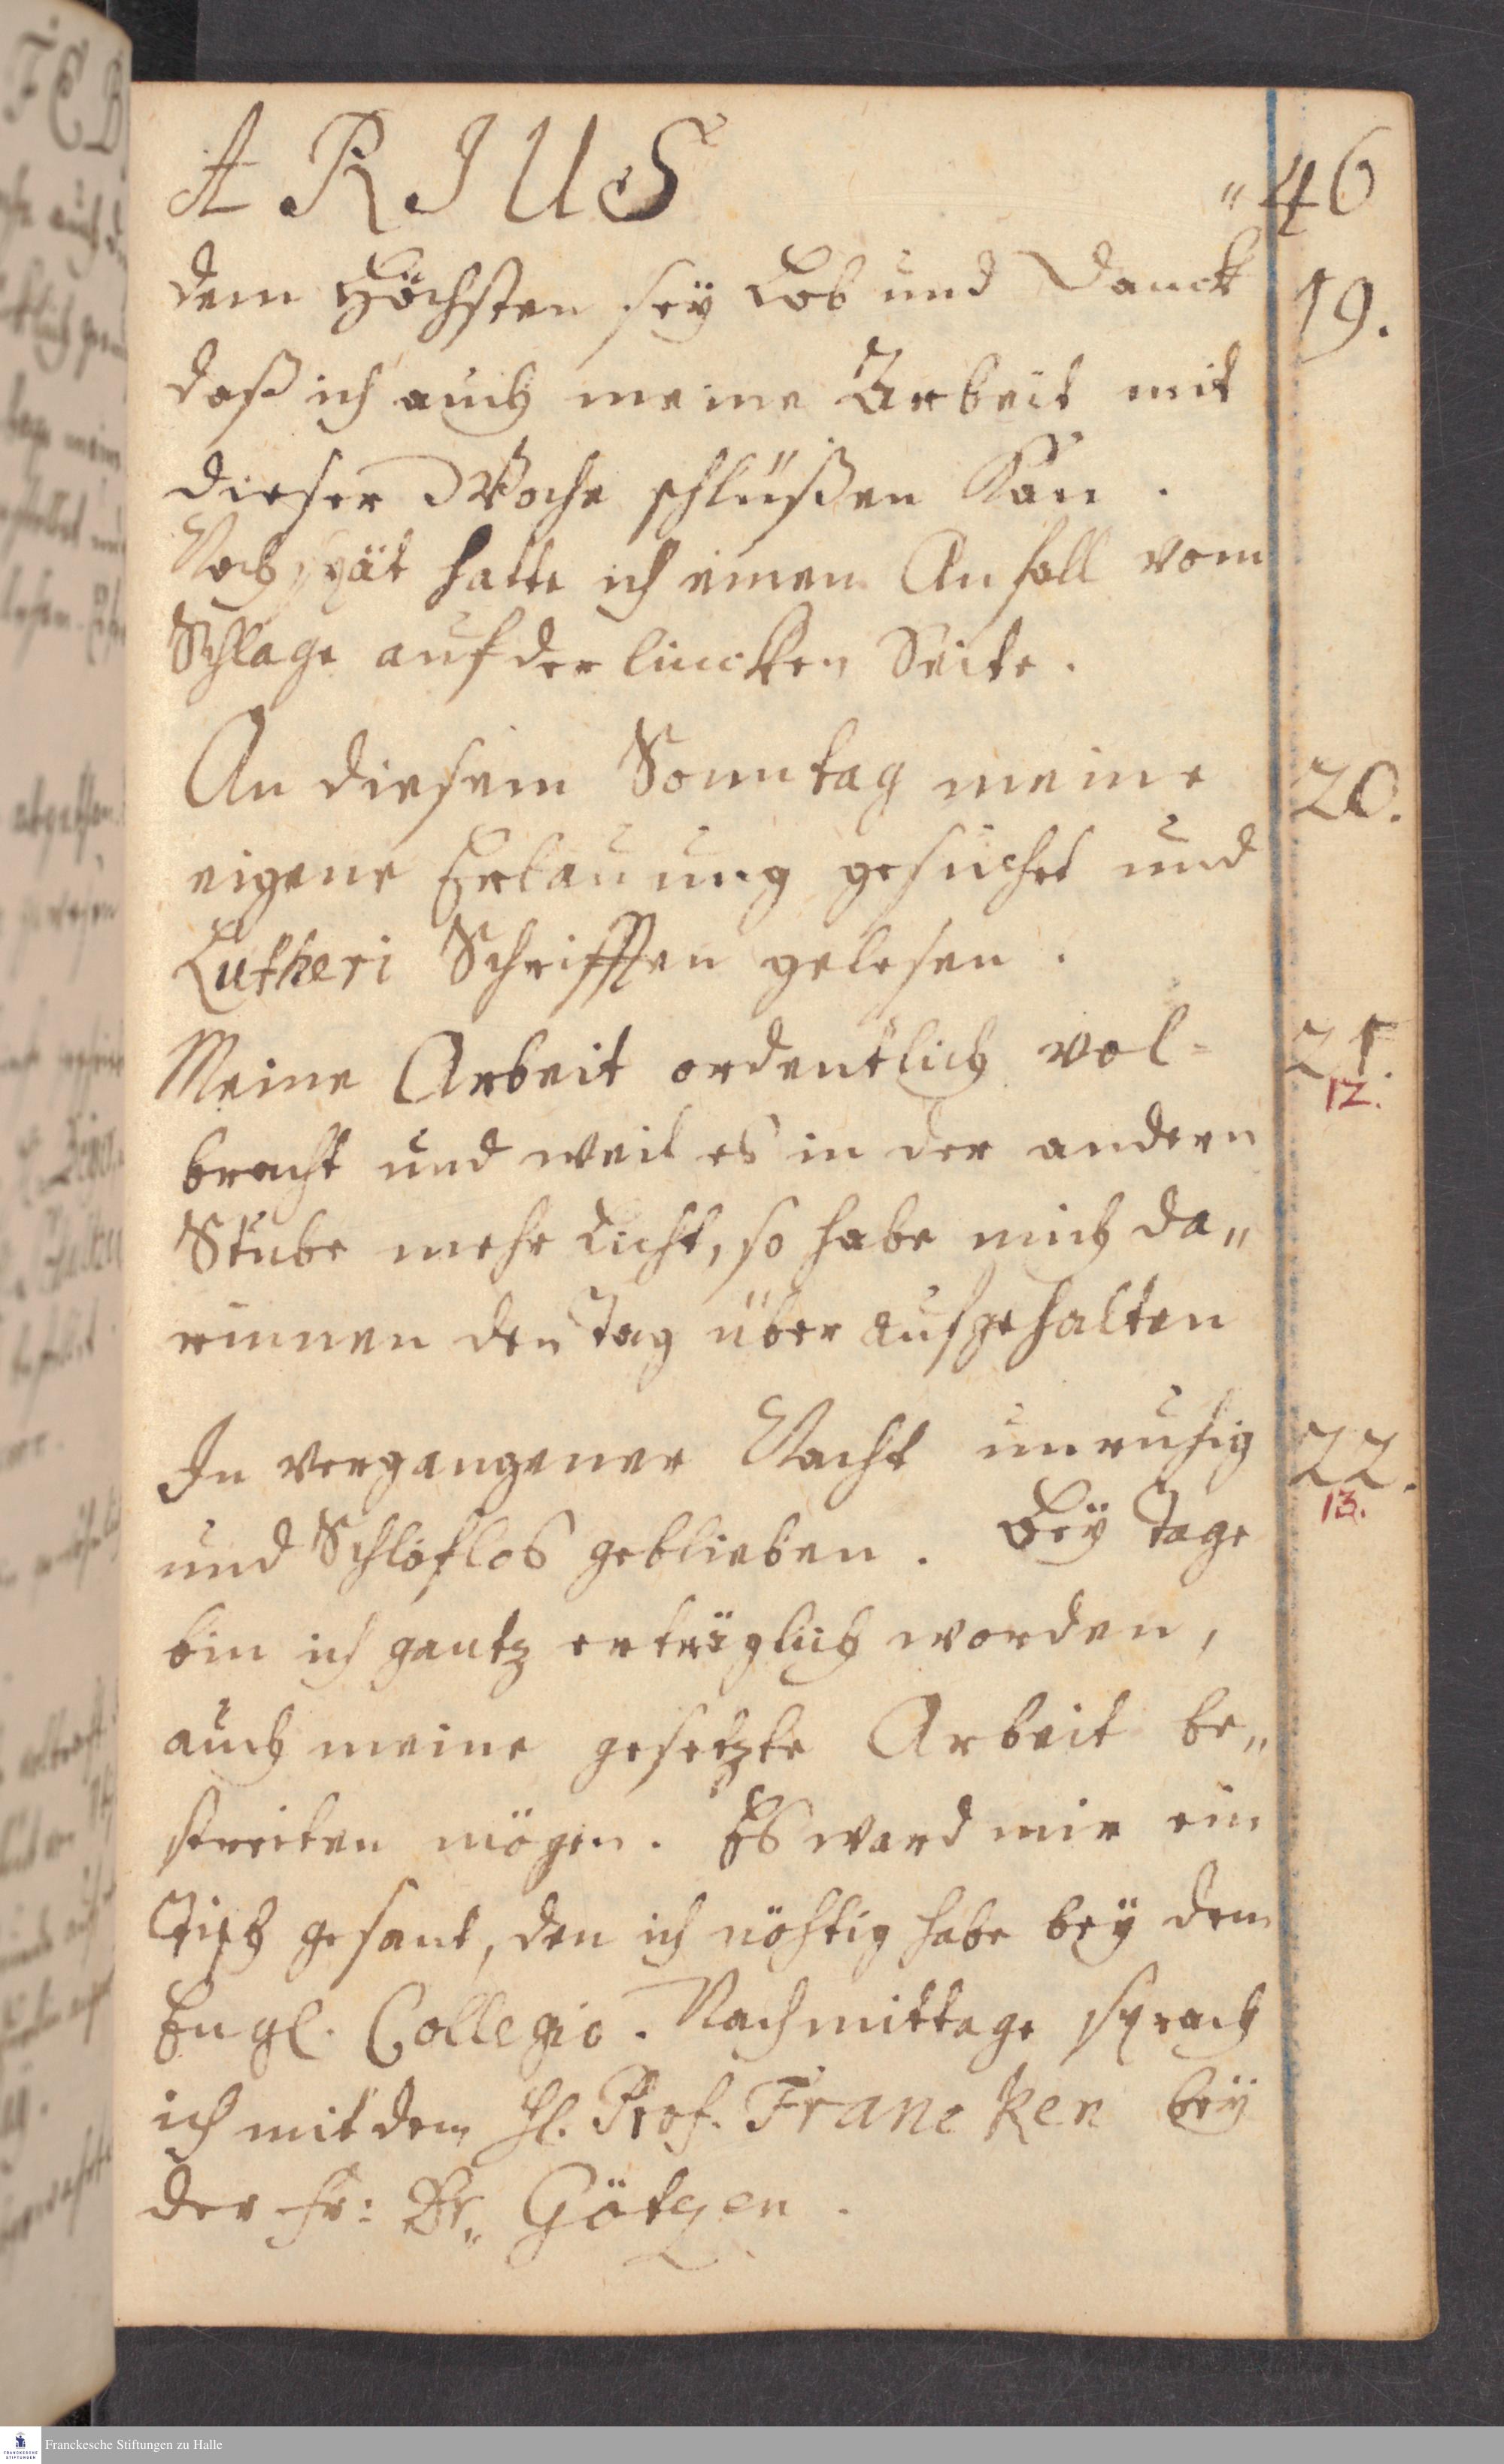 ARIUS " 46
dem Höchsten seÿ Lob und Danck 19.
daß ich auch meine Arbeit mit
dieser Woche schlüßen kan.
Noch spät hatte ich einen Anfall vom
Schlage auf der lincken Seite.
An diesem Sonntag meine 20.
eigene Erbauung gesuchet und
Lutheri Schrifften gelesen.
Meine Arbeit ordentlich vol= 21.
12.
bracht und weil es in der andern
Stube mehr Licht, so habe mich da„
rinnen den Tag über aufgehalten
In vergangener Nacht unruhig 22.
13.
und Schloflos geblieben. Beÿ Tage
bin ich gantz erträglich worden,
auch meine gesetzte Arbeit be„
streiten mögen. Es ward mir ein
Tisch gesant, den ich nöhtig habe beÿ dem
Engl. Collegio. Nachmittage sprach
ich mit dem H. Prof. Francken beÿ
der Fr: Dr„ Götzen.
Franckesche Stiftungen zu Halle